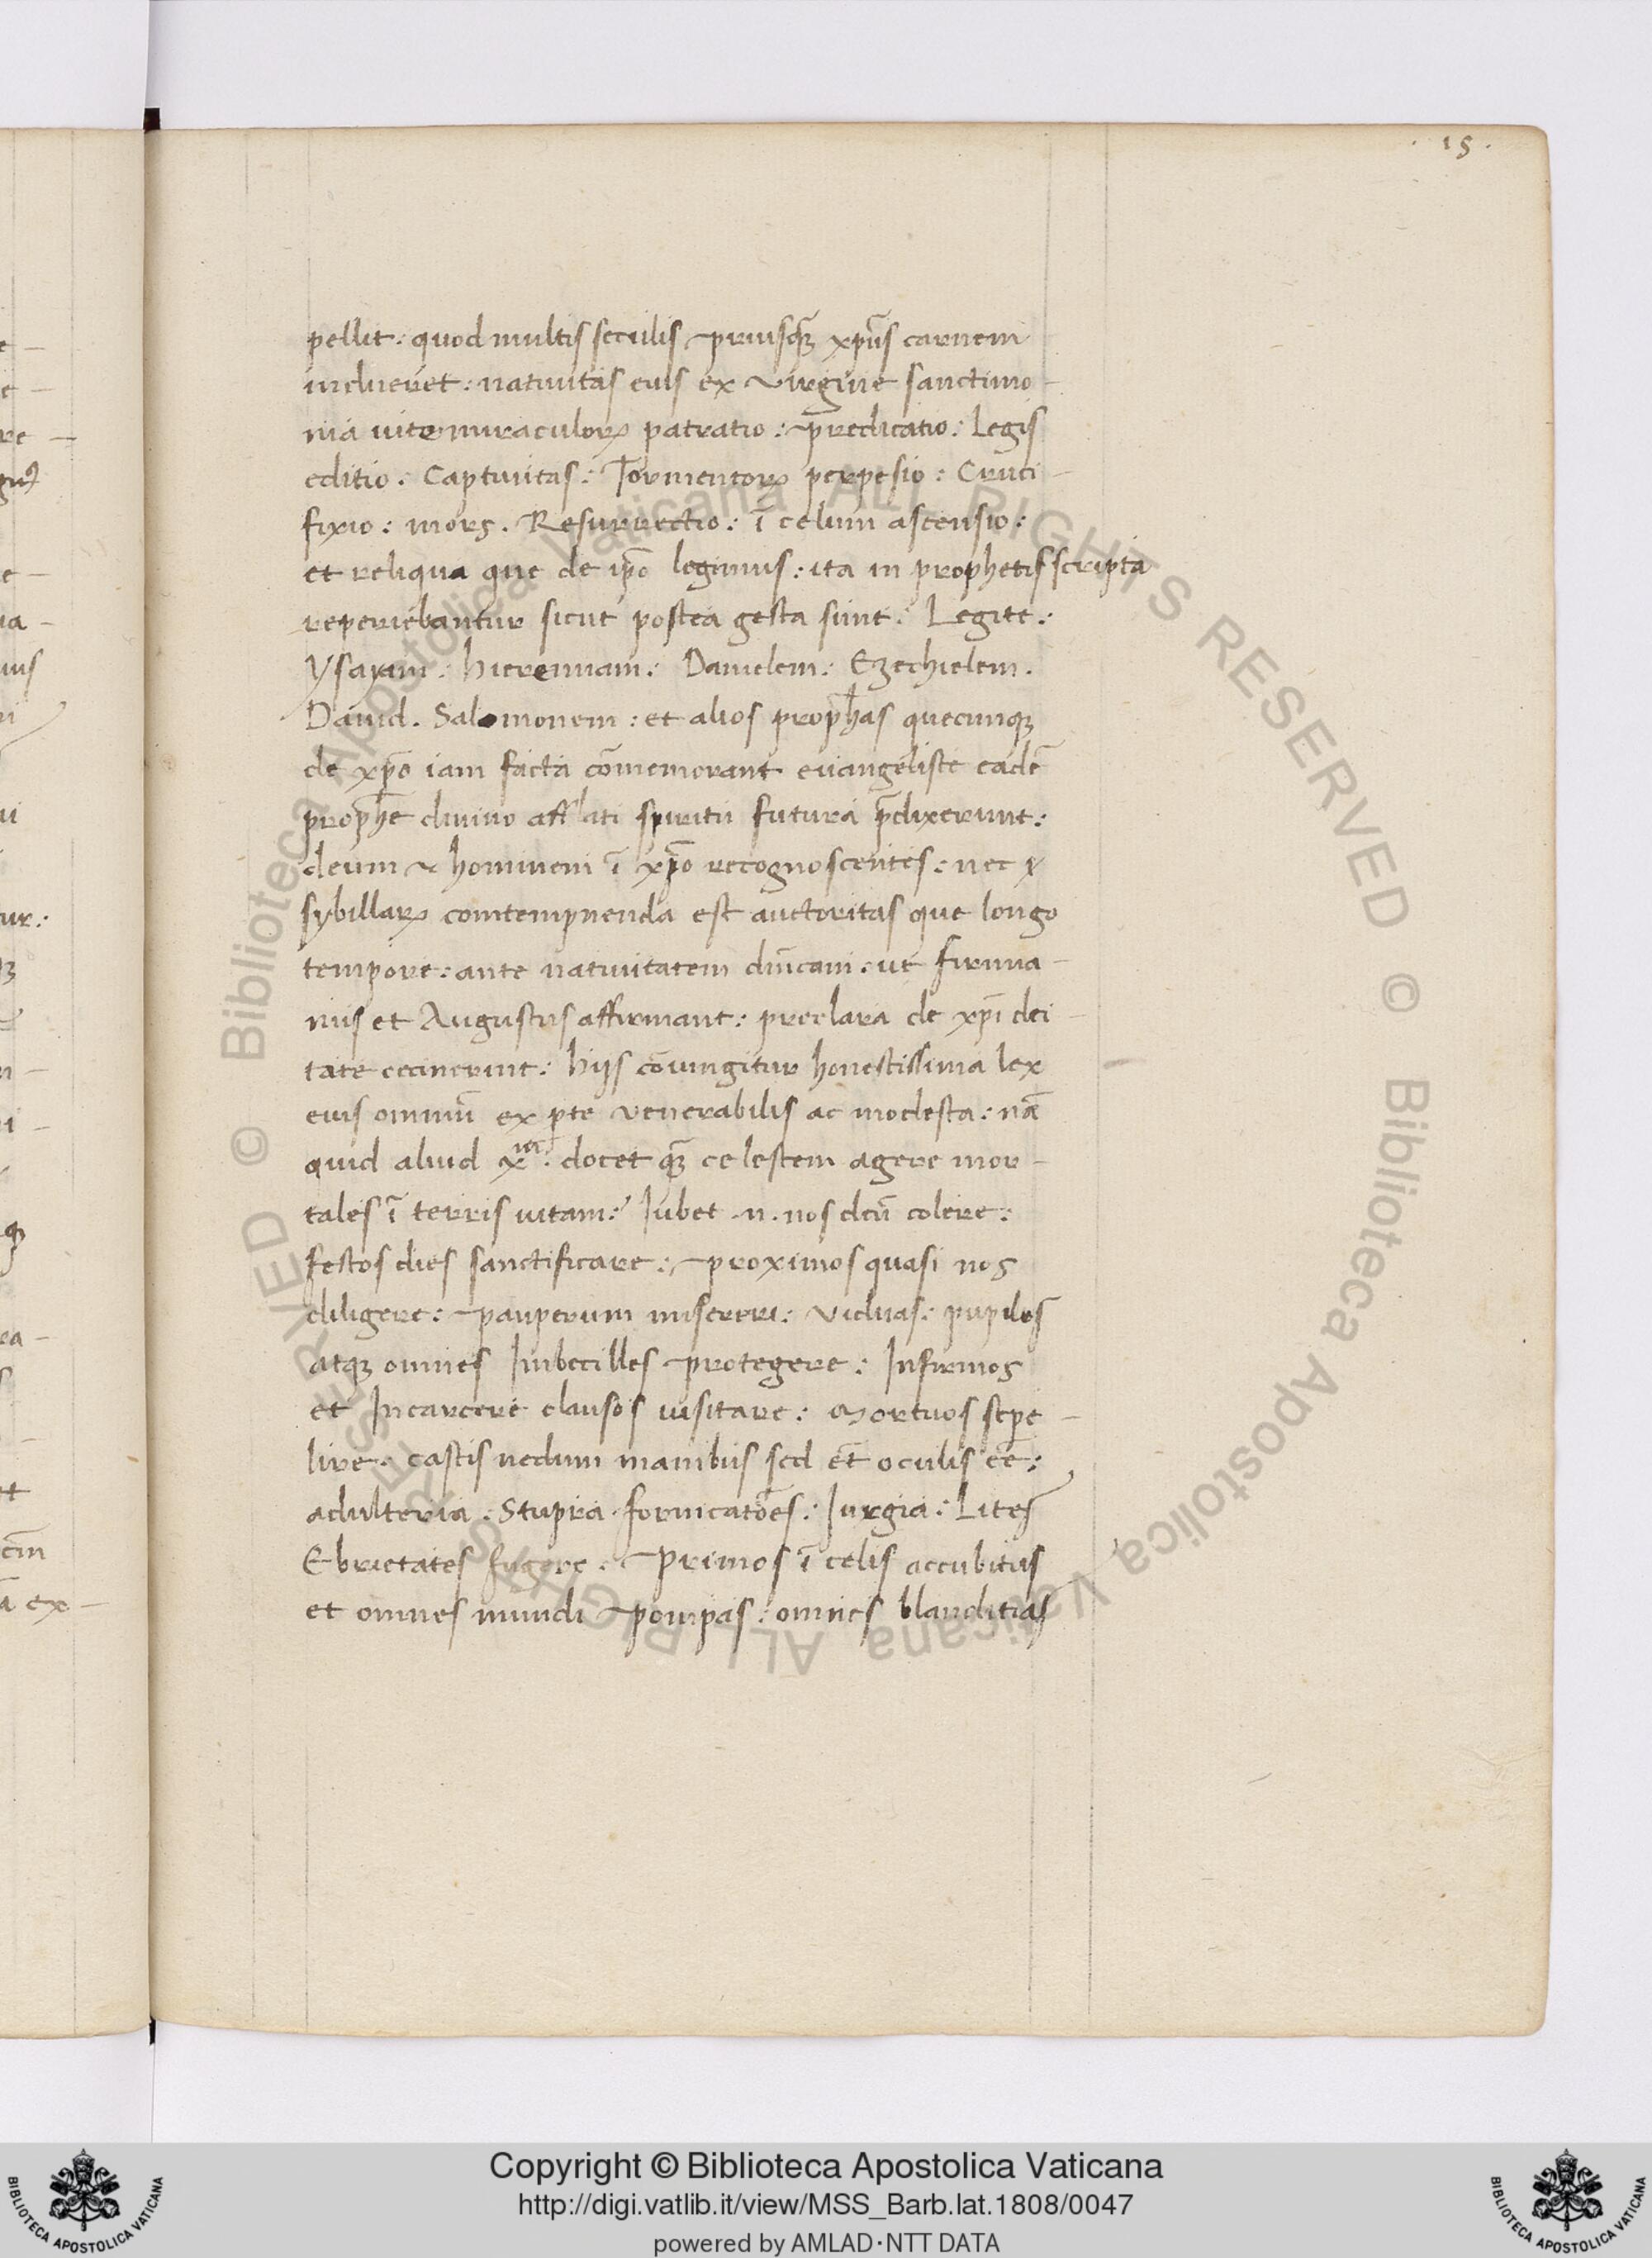 . 15 .
pellit: quod multis seculis priusqꝫ xp̄us carnem
indueret: natiuitas eius ex virgine sanctimo-
nia uite miraculorꝝ patratio: predicatio: Legis
editio: Captiuitas: Tormentorꝝ perpesio: Cruci-
fixio: mors. Resurrectio: ī celum ascensio:
et reliqua que de ip̄o legimus: ita in prophetis scripta
reperiebantur sicut postea gesta sunt: Legite:
Ysayam: hieremiam: Danielem: Ezechielem.
Dauid. Salomonem: et alios proph̄as quecunqꝫ
de xp̄o iam facta cōmemorant euangeliste eadē
proph̄e diuino afflati spiritu futura p̄dixerunt:
deum & hominem ī xp̄o recognoscentes: nec
sybillarꝝ comtempnenda est auctoritas que longo
tempore: ante natiuitatem dn̄icam: ut firmia-
nus et Augustus affirmant: preclara de xp̄i dei-
tate cecinerunt: hijs cōiungitur honestissima lex
eius omniū ex pte venerabilis ac modesta: nā
quid aliud xna. docet qꝫ celestem agere mor-
tales ī terris uitam: Iubet .n. nos deū colere:
festos dies sanctificare: proximos quasi nos
diligere: pauperum misereri: viduas: pupilos
atqꝫ omnes Imbecilles protegere: Infirmos
et Incarcere clausos uisitare: mortuos sepe-
lire. castis nedum manibus sed et̄ oculis ēe:
adulteria: Stupra. fornicatōes: Iurgia: Lites
Ebrietates fugere: primos ī celis accubitus
et omnes mundi pompas: omnes blanditias
© Biblioteca Apostolica Vaticana ALL RIGHTS RESERVED © Biblioteca Apostolica Vaticana ALL RIGHTS RESERVED
Copyright © Biblioteca Apostolica Vaticana
http://digi.vatlib.it/view/MSS_Barb.lat.1808/0047
powered by AMLAD·NTT DATA
BIBLIOTECA APOSTOLICA VATICANA
BIBLIOTECA APOSTOLICA VATICANA